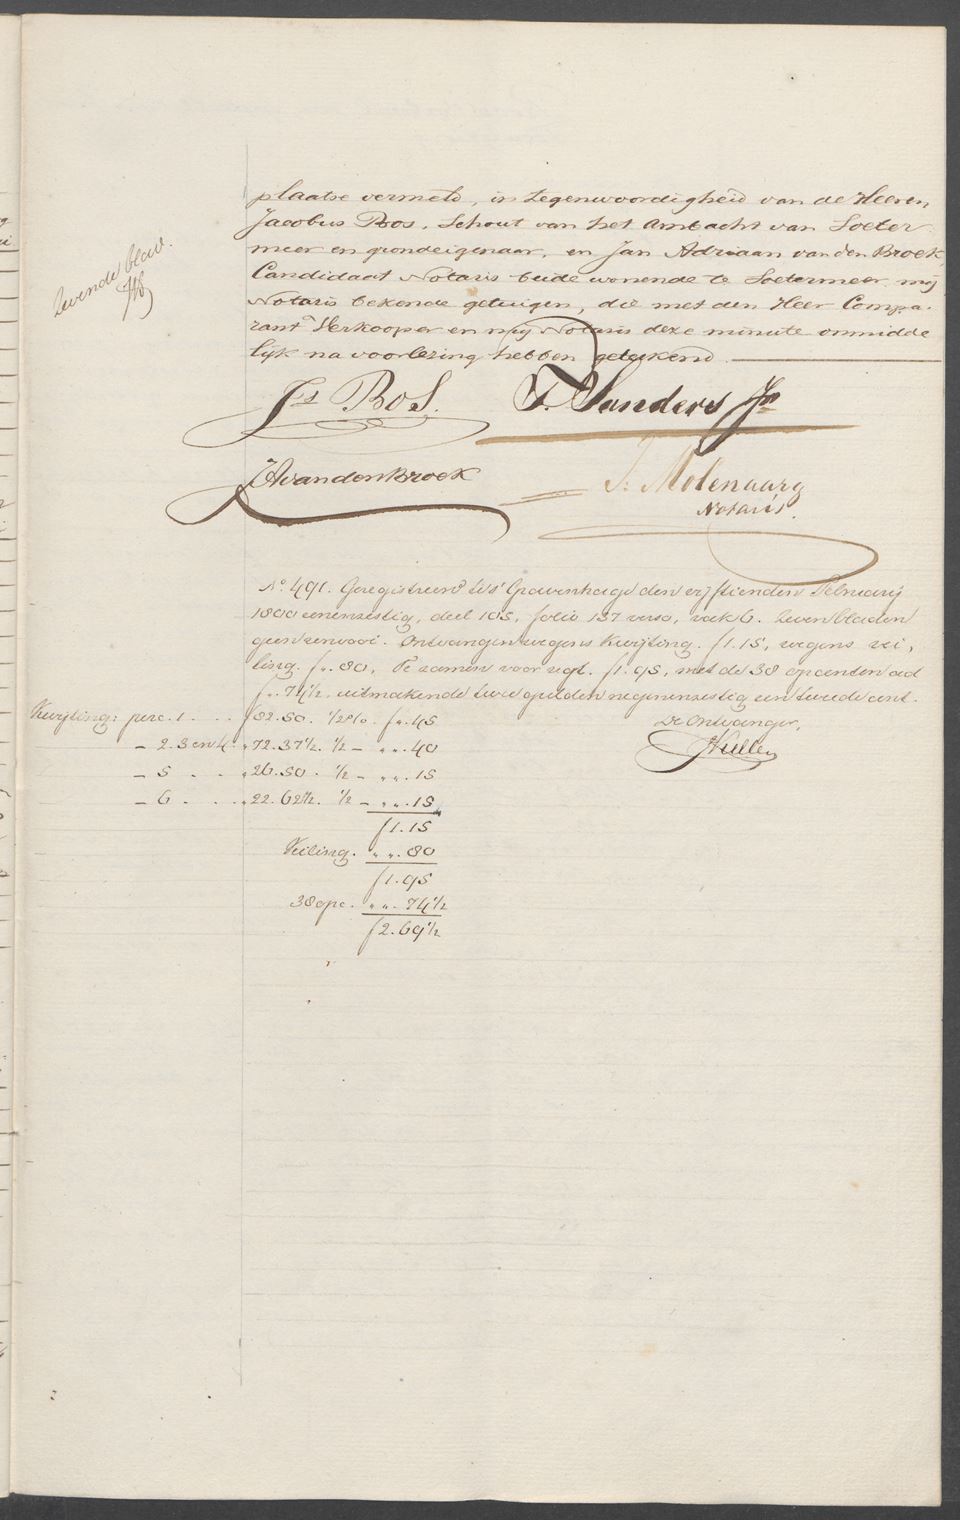 zevende blad.
plaatse vermeld, in tegenwoordigheid van de Heeren
Jacobus Bos, Schout van het Ambacht van Soeter-
meer en grondeigenaar, en Jan Adriaan van den Broek,
Candidaat Notaris beide wonende te Soetermeer, mij
Notaris bekende getuigen, die met den Heer Compa-
rant Verkooper en mij Notaris deze minute onmidde
lijk na voorlezing hebben geteekend.
Js Bos.
T. Sanders Jr
JAvandenBroek
J. Molenaar
Notaris.
No. 491. Geregistreerd te 's Gravenhage den vijftienden February
1800 eenenzestig, deel 105, folio 137 verso, vak 6. zeven bladen
geen renvooi. Ontvangen wegens Kwijting. f 1.15, wegens vei,
ling. f ". 80, Te zamen voor regt. f 1.95, met de 38 opcenten ad
f ". 74 1/2. uitmakende twee gulden negenenzestig een tweede cent.
De Ontvanger,
Kwijting: perc. 1. . . f 82.50. 1/2 pCo. f ". 45
— 2.3 en 4. " 72.37 1/2. 1/2 — " ". 40
— 5 . . " 26.50 . 1/2 — " ". 15
— 6 . . . " 22.62 1/2. 1/2 — " ". 15
f 1.15
Veiling. " ". 80
f 1.95
38 opc. " ". 74 1/2
f 2.69 1/2